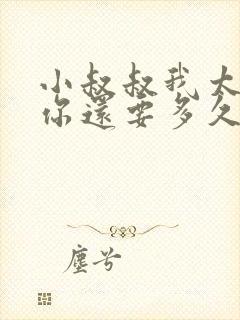 小叔叔我大
你還要多久
塵兮